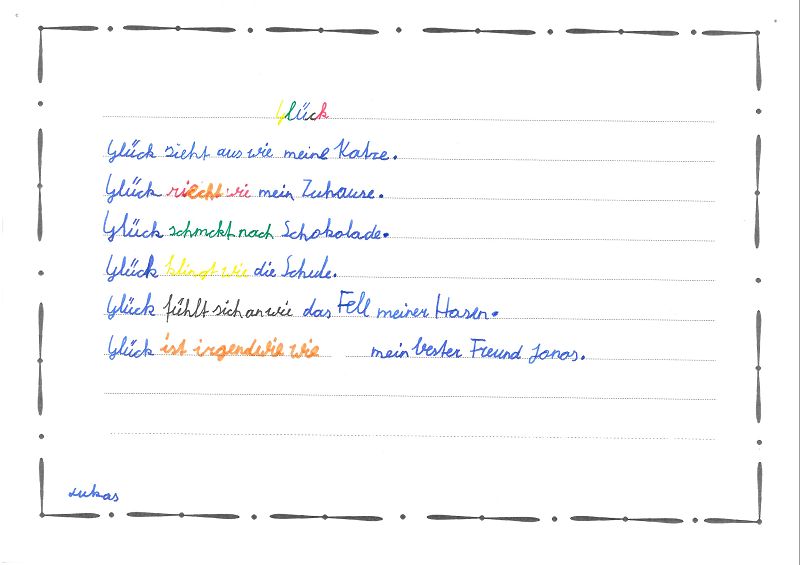 Glück
Glück sieht aus wie meine Katze.
Glück riecht wi mein Zuhause.
Glück schmckt nach Schokolade.
Glück klingt wie die Schule.
Glück fühlt sich an wie das Fell meiner Hasen.
Glück ist irgendwie wie mein bester Freund Jonas.
Lukas